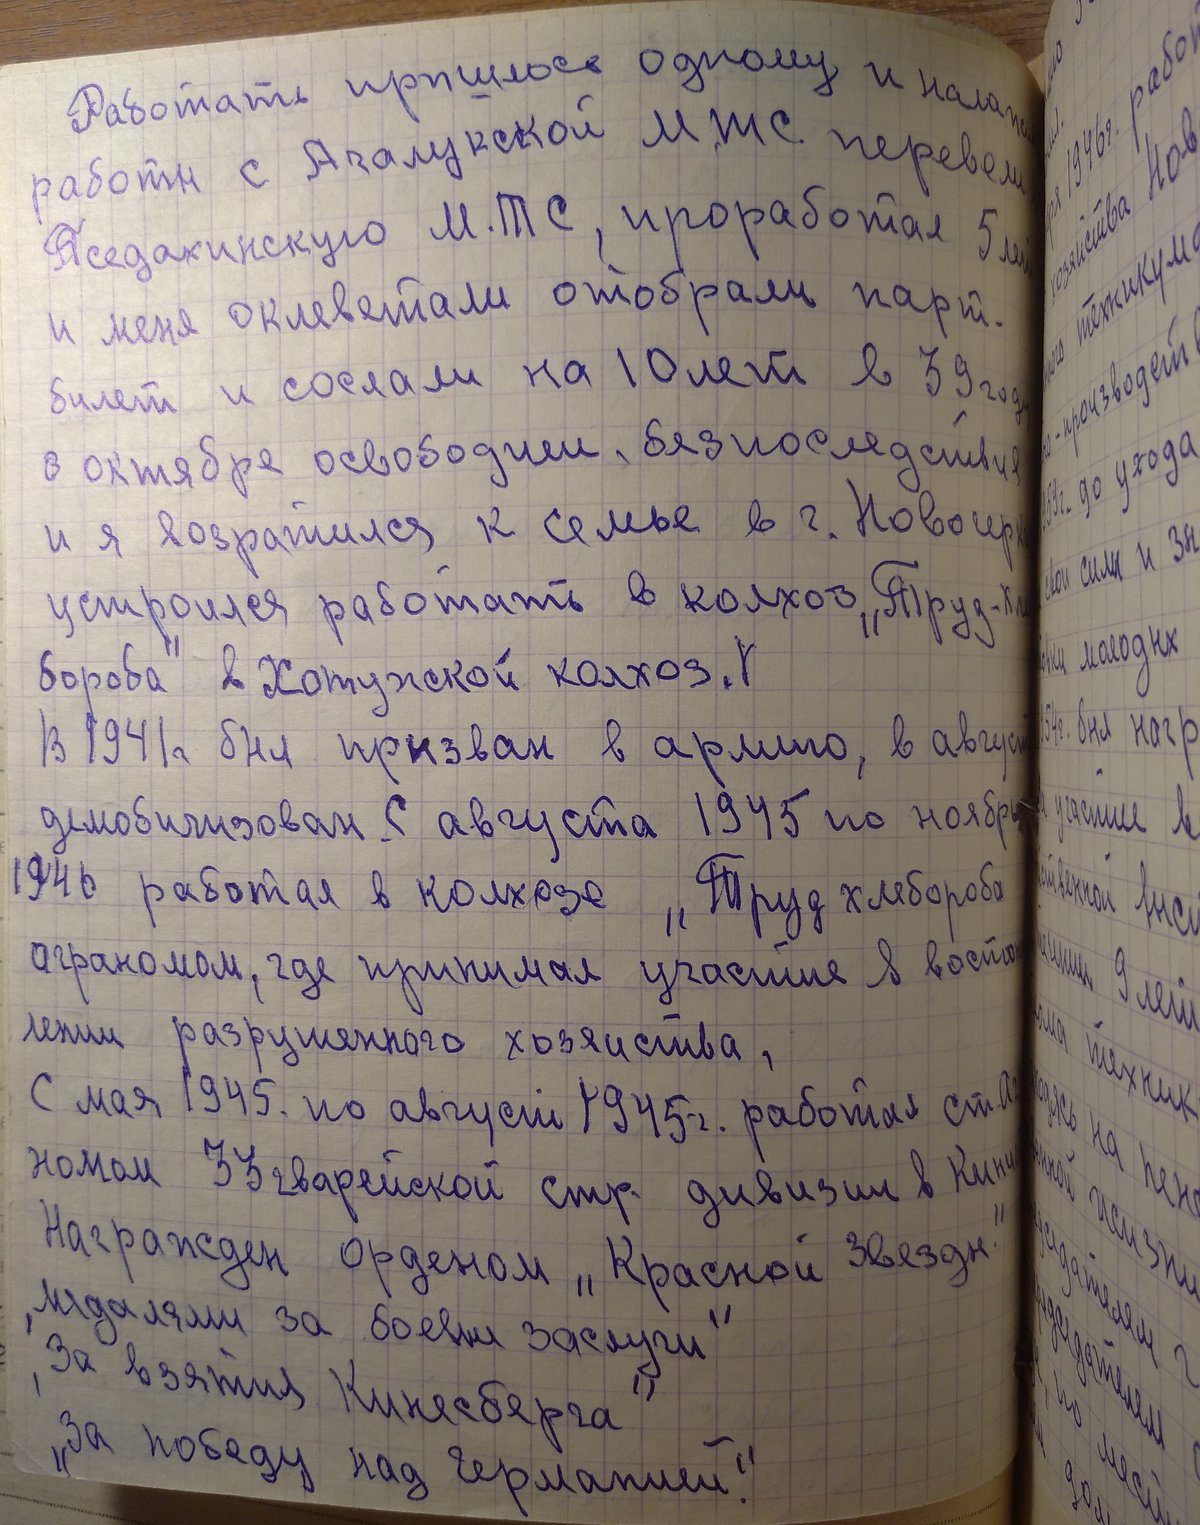 Работать пришлось одному и налаж
работы с Ачалукской М.Т.С. перевели
Пседахинскую М.Т.С, проработал 5 лет
и меня оклеветали отобрали парт.
билет и сослали на 10 лет в 39 году
в октябре освободили. безпоследствия
и я возратился к семье в г. Новочерк
устроился работать в колхоз „Труд-хле
бороба" в Хотунской колхоз.
В 1941г был призван в армию, в август
демобилизован. С августа 1945 по ноябрь
1946 работал в колхозе „Труд хлебороба
аграномом, где принимал участие в востон
лении разрушенного хозяйства,
С мая 1945. по август 1945г. работал ст. аг
номом 33 гварейской стр. дивизии в Кини
Награжден орденом „Красной Звезды"
„мядалями за боевые заслуги"
„За взятия Кинесберга"
„За победу над Германией".
ря 1946г. работ
хозяйства Нов
техникума
-производств
до ухода
свои силы и зн
молодых
был нагр
участие в
9 лет
техник
на пенс